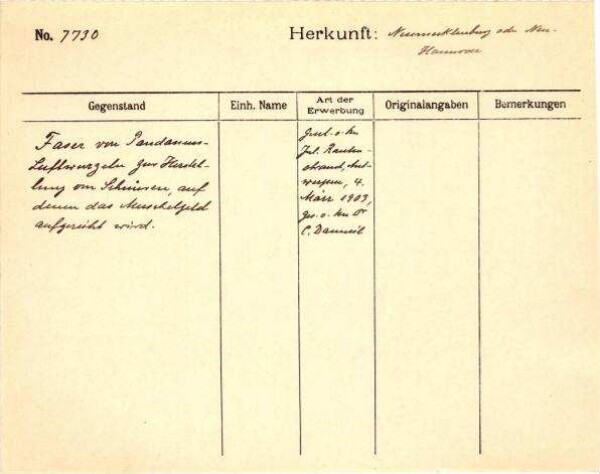 No. 7730
Herkunft: Neumecklenburg oder Neu-
Hannover
Gegenstand
Einh. Name
Art der
Erwerbung
Originalangaben
Bemerkungen
Faser von Pandanus-
Luftwurzeln zur Herstel-
lung von Schnüren, auf
denen das Muschelgeld
aufgereiht wird.
Jul.
strand, Ant-
werpen, 4.
März 1909,
ges. v.
C. Danneil